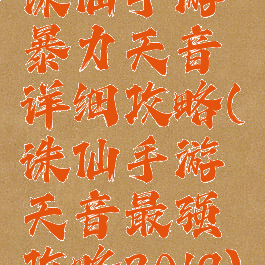 诛仙手游
暴力天音
详细攻略(
诛仙手游
天音最强
攻略2019)